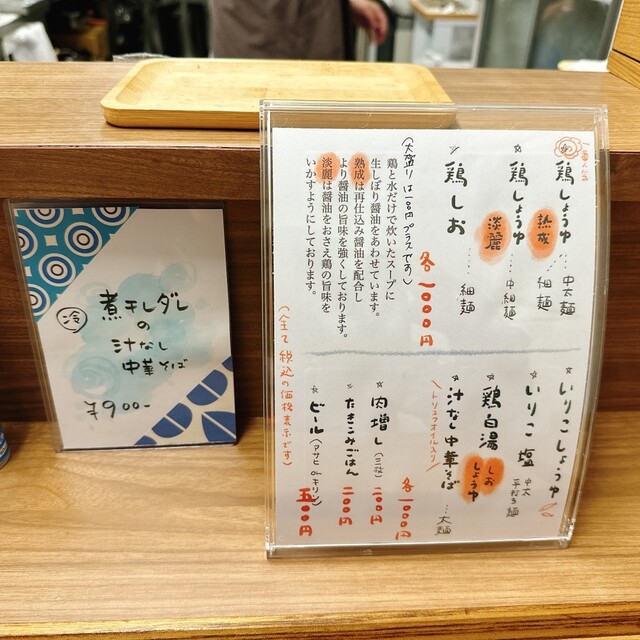 煮干しダレ
の
冷
汁なし
中華そば
¥900-
一番人気
鶏しょうゆ 熟成 中太麺 細麺
鶏しょうゆ 淡麗 … 中細麺
鶏しお … 細麺
各一〇〇〇円
(大盛りは一〇〇円プラスです)
鶏と水だけで炊いたスープに
生しぼり醤油をあわせています。
熟成は再仕込み醤油を配合し
より醤油の旨味を強くしております。
淡麗は醤油をおさえ鶏の旨味を
いかすようにしております。
いりこしょうゆ
いりこ塩 中太 平打ち麺
鶏白湯 しお しょうゆ
汁なし中華そば … 太麺
\トリュフオイル入り/
各一〇〇〇円
肉増し(三枚) 二〇〇円
たきこみごはん 二〇〇円
ビール(アサヒ or キリン) 五〇〇円
(全て税込の価格表示です)